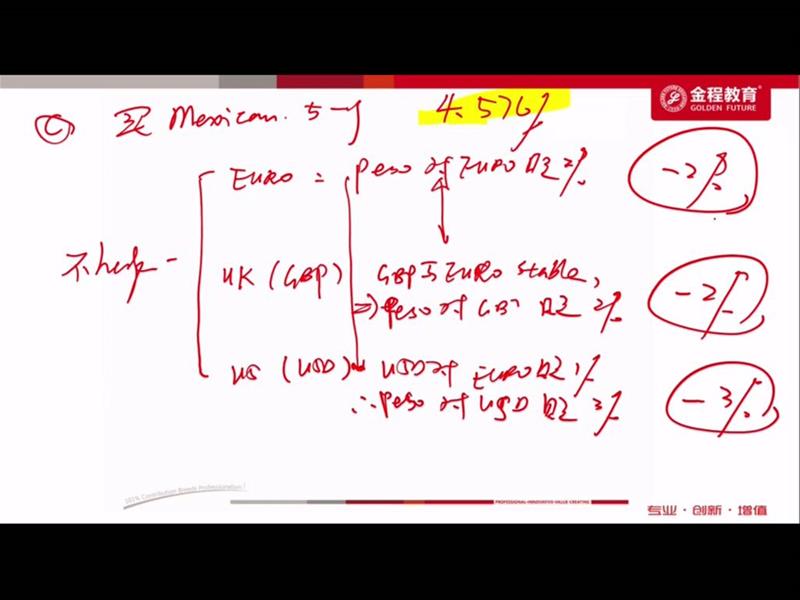 金程教育
GOLDEN FUTURE
C 买 Mexican. 5-y 4.576%
EURO = peso 对 EURO 贬 2% -2%
不hedge
UK (GBP) GBP 与 EURO stable,
⇒ peso 对 GBP 贬 2% -2%
US (USD) USD 对 EURO 贬 1%
∴ peso 对 USD 贬 3% -3%
101% Contribution Breeds Professionalism!
PROFESSIONAL·INNOVATIVE·VALUE-CREATING
专业·创新·增值